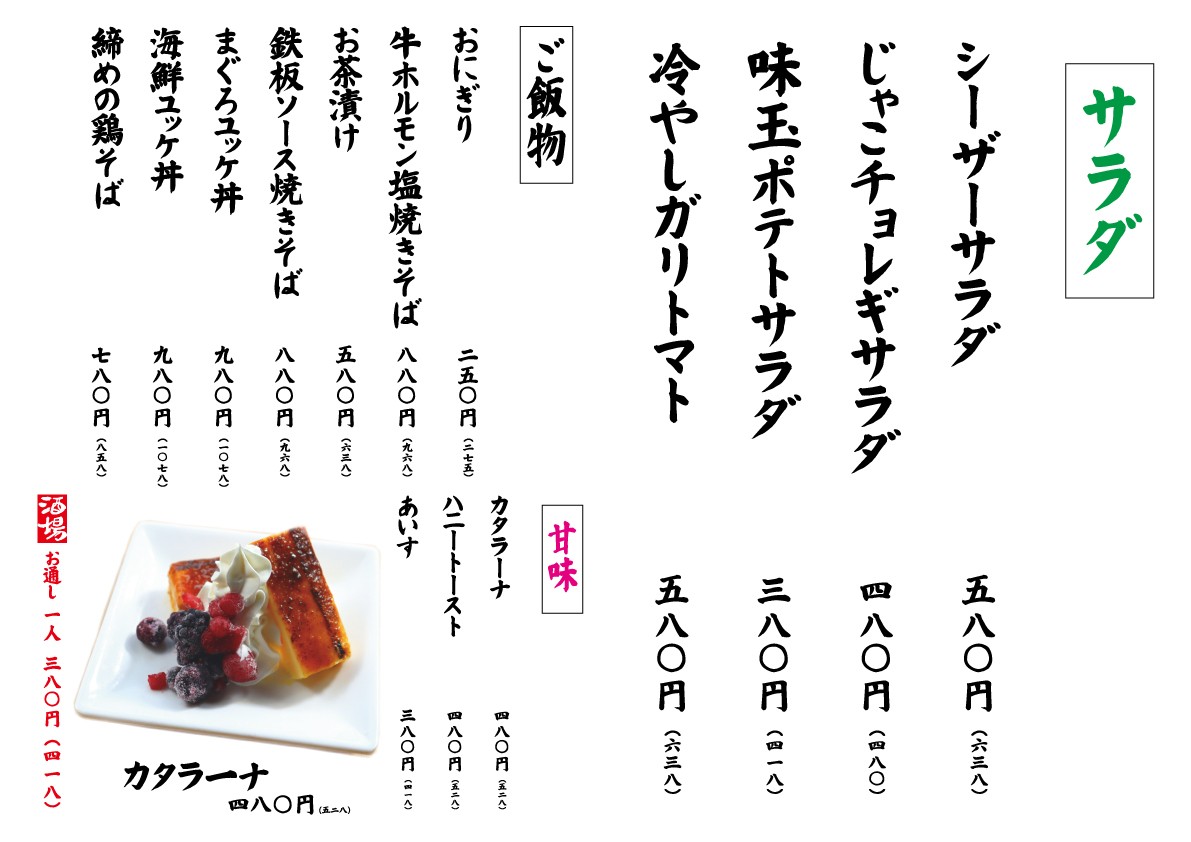 サラダ
シーザーサラダ 五八〇円(六三八)
じゃこチョレギサラダ 四八〇円(四八〇)
味玉ポテトサラダ 三八〇円(四一八)
冷やしガリトマト 五八〇円(六三八)
ご飯物
おにぎり 二五〇円(二七五)
牛ホルモン塩焼きそば 八八〇円(九六八)
お茶漬け 五八〇円(六三八)
鉄板ソース焼きそば 八八〇円(九六八)
まぐろユッケ丼 九八〇円(一〇七八)
海鮮ユッケ丼 九八〇円(一〇七八)
締めの鶏そば 七八〇円(八五八)
甘味
カタラーナ 四八〇円(五二八)
ハニートースト 四八〇円(五二八)
あいす 三八〇円(四一八)
カタラーナ
四八〇円(五二八)
酒場 お通し 一人 三八〇円(四一八)